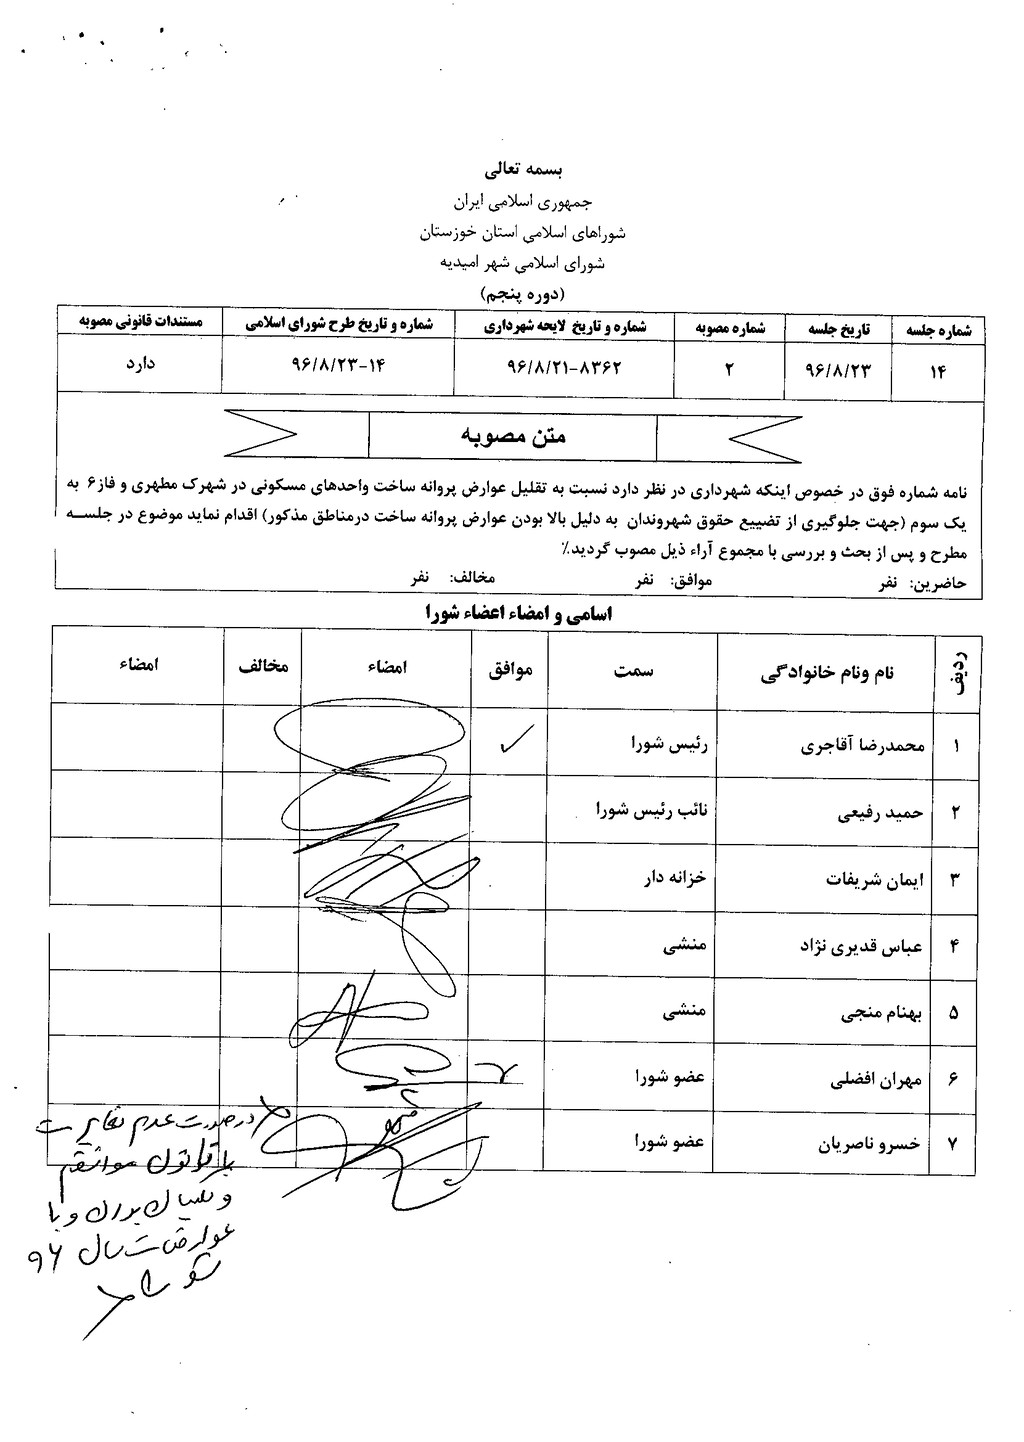 بسمه تعالی
جمهوری اسلامی ایران
شوراهای اسلامی استان خوزستان
شورای اسلامی شهر امیدیه
(دوره پنجم)
شماره جلسه تاریخ جلسه شماره مصوبه شماره و تاریخ لایحه شهرداری شماره و تاریخ طرح شورای اسلامی مستندات قانونی مصوبه
۱۴ ۹۶/۸/۲۳ ۲ ۹۶/۸/۲۱-۸۳۶۲ ۹۶/۸/۲۳-۱۴ دارد
متن مصوبه
نامه شماره فوق در خصوص اینکه شهرداری در نظر دارد نسبت به تقلیل عوارض پروانه ساخت واحدهای مسکونی در شهرک مطهری و فاز۶ به
یک سوم (جهت جلوگیری از تضییع حقوق شهروندان به دلیل بالا بودن عوارض پروانه ساخت درمناطق مذکور) اقدام نماید موضوع در جلسه
مطرح و پس از بحث و بررسی با مجموع آراء ذیل مصوب گردید٪
حاضرین: نفر موافق: نفر مخالف: نفر
اسامی و امضاء اعضاء شورا
ردیف نام ونام خانوادگی سمت موافق امضاء مخالف امضاء
۱ محمدرضا آقاجری رئیس شورا ✓
۲ حمید رفیعی نائب رئیس شورا
۳ ایمان شریفات خزانه دار
۴ عباس قدیری نژاد منشی
۵ بهنام منجی منشی
۶ مهران افضلی عضو شورا
۷ خسرو ناصریان عضو شورا
در صورت عدم مغایرت
با قانون موافقم
و
عوارضات سال ۹۶